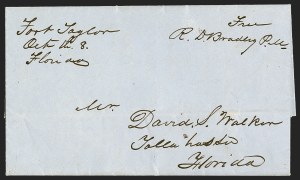 Fort Taylor
Oct th 8.
Florida
Free
R. D. Bradley P.M
Mr.
David. S. Walker
Talla"hassee
Florida